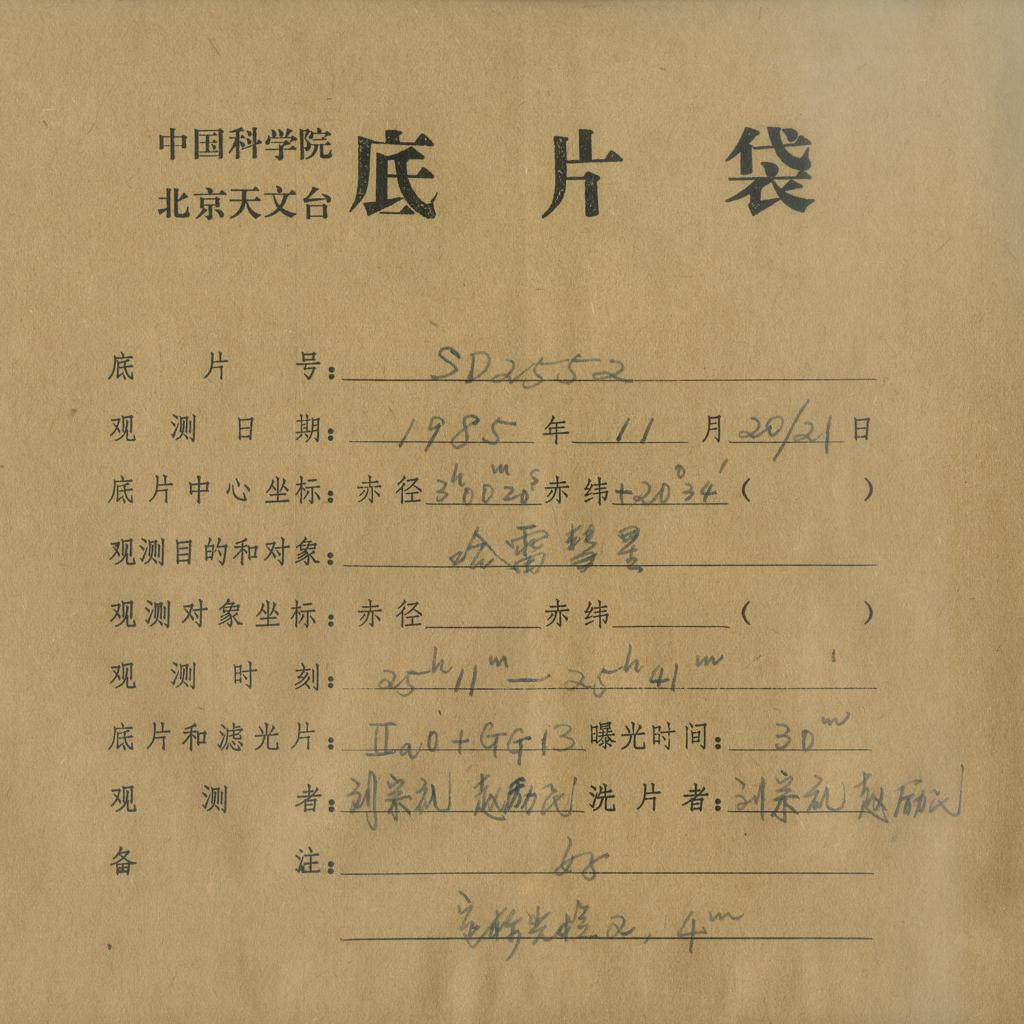 中国科学院
北京天文台 底片袋
底片号: SD2552
观测日期: 1985年11月20/21日
底片中心坐标: 赤径 3h00m20s 赤纬 +20°34′ ( )
观测目的和对象: 哈雷彗星
观测对象坐标: 赤径 赤纬 ( )
观测时刻: 25h11m — 25h41m
底片和滤光片: IIaO+GG13 曝光时间: 30m
观测者: 刘宗礼 赵励民 洗片者: 刘宗礼 赵励民
备注: 好
定标光楔2, 4m